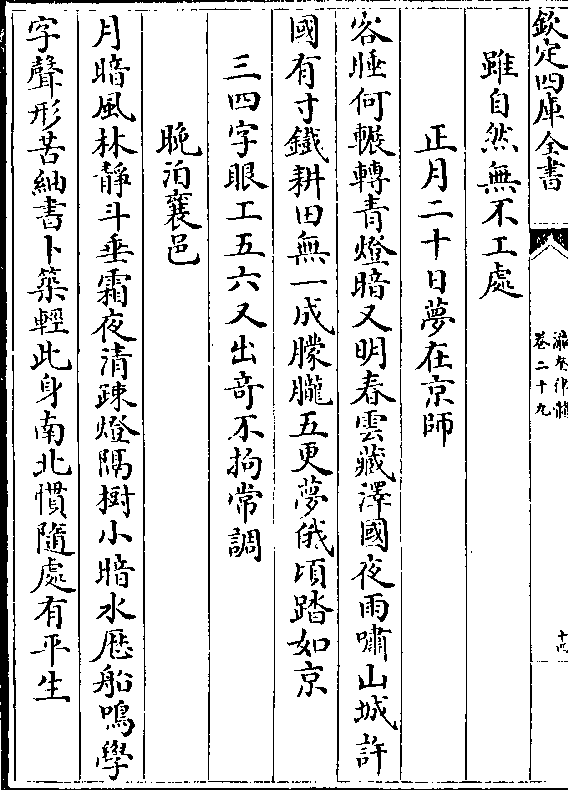 欽定四庫全書
瀛奎律髓
卷二十九
十四
雖自然無不工處
正月二十日夢在京師
客睡何輾轉青燈暗又明春雲藏澤國夜雨嘯山城許
國有寸鐵耕田無一成朦朧五更夢俄頃踏如京
三四字眼工五六又出奇不拘常調
晚泊襄邑
月暗風林靜斗垂霜夜清疎燈隔樹小暗水厯船鳴學
字聲形苦紬書卜築輕此身南北慣隨處有平生